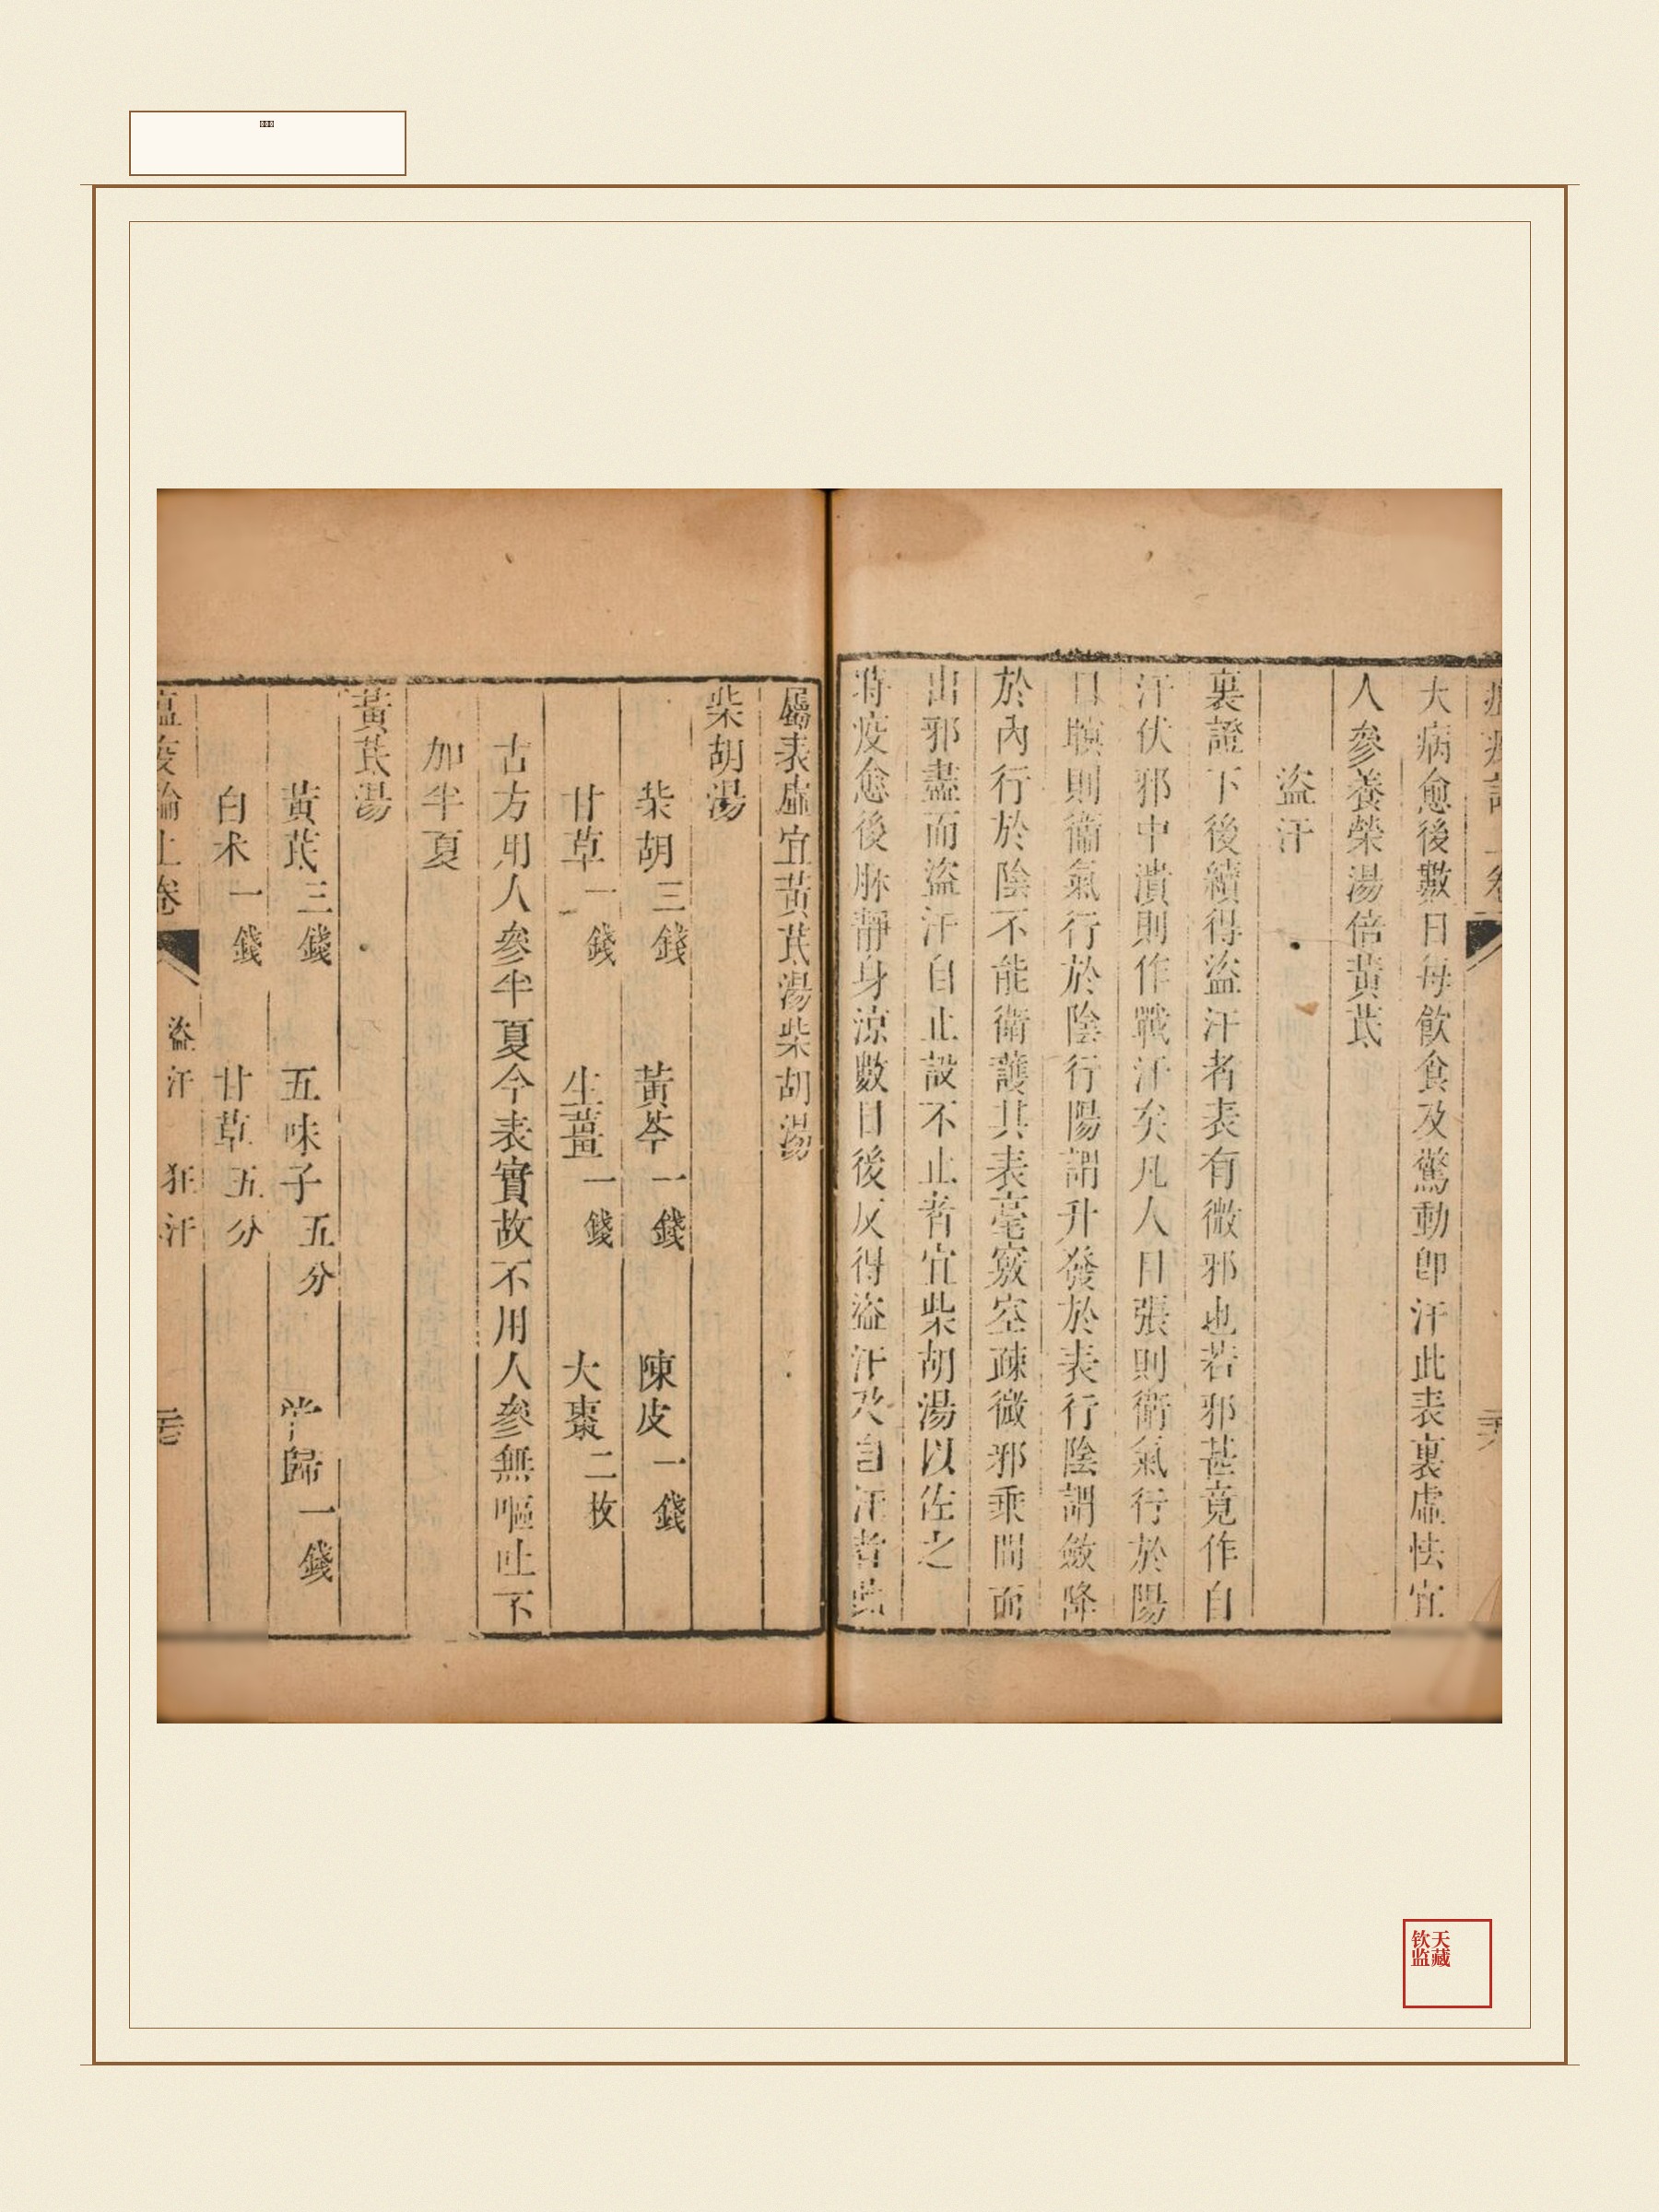 大病愈後數日每飲食及驚動卽汗此表裏虛怯宜
人參養榮湯倍黃芪
盜汗
裏證下後續得盜汗者表有微邪也若邪甚竟作自
汗伏邪中潰則作戰汗矣凡人目張則衞氣行於陽
目瞑則衞氣行於陰行陽謂升發於表行陰謂斂降
於內行於陰不能衞護其表毫竅空疎微邪乘間而
出邪盡而盜汗自止設不止者宜柴胡湯以佐之
時疫愈後脉靜身涼數日後反得盜汗及自汗者此
屬表虛宜黃芪湯柴胡湯
柴胡湯
柴胡三錢 黃芩一錢 陳皮一錢
甘草一錢 生薑一錢 大棗二枚
古方用人參半夏今表實故不用人參無嘔吐不
加半夏
黃芪湯
黃芪三錢 五味子五分 當歸一錢
白朮一錢 甘草五分
瘟疫論上卷 盜汗 狂汗
天藏
钦监